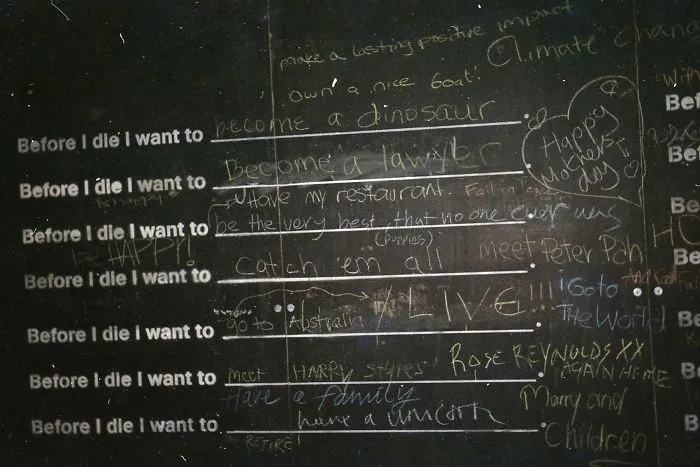 make a lasting positive impact
Climate Chang
own a nice boat!
Before I die I want to become a dinosaur.
Before I die I want to Become a lawyer.
Happy Mother's day
Have my restaurant. Fall in
Before I die I want to be the very best that no one ever was
HAPPY! (puppies)
Before I die I want to catch 'em all. meet Peter Pan
ALIVE!!! Go to The World
Before I die I want to go to Australia.
Before I die I want to meet HARRY STYLES! ROSE REYNOLDS XX
AGAIN HOME
Have a family Marry and Children
Before I die I want to have a unicorn.
RETIRE!
Bef
Bef
Be
Be
B